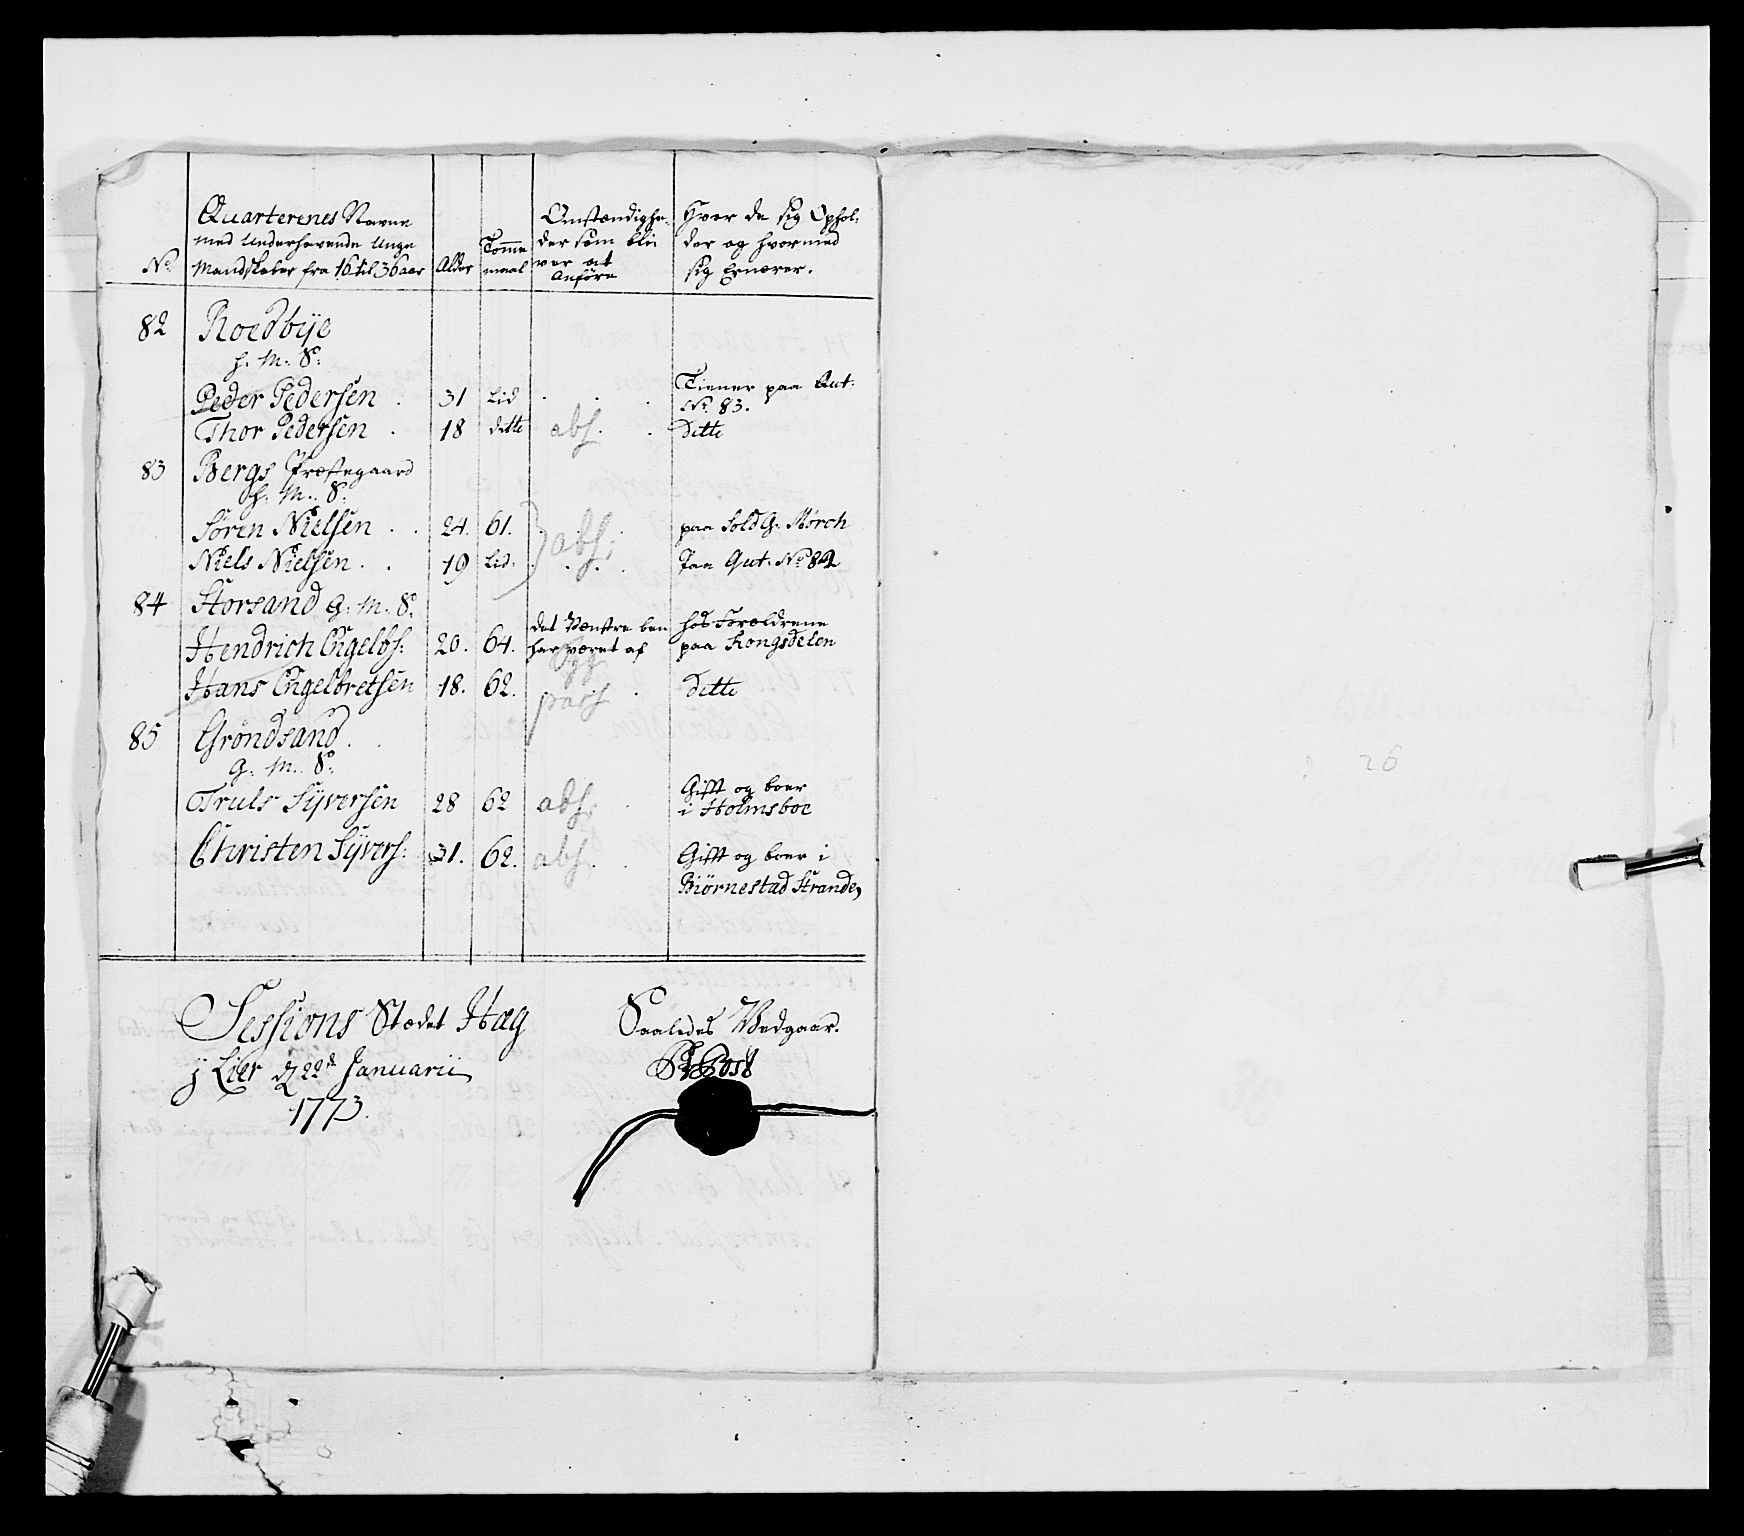 No.
Quarterenes Navne
med Underhavende Unge
Mandskaber fra 16 til 36 aar
Alder
Tomme
maal
Omstændighe-
der som bli
ver at
Anføre
Hvor de sig Ophol-
der og hvormed
sig Ernærer.
82 Roedbÿe
h. M. S:
Peder Pedersen . 31 Lid . . . Tiener paa Qut:
No. 83.
Thor Pedersen . 18 ditto abs. . ditto
83 Bergs Præstegaard
h. M. S:
Søren Nielsen . . 24. 61. abs: paa Sold G. Mørch
Niels Nielsen . . 19 Lid. . . . Paa Qut. No. 82
84 Storsand G. M. S:
Hendrich Engelbs: 20. 64. det Venstre ben
har været af
hos Forældrene
paa Kongsdelen
Hans Engelbretsen 18. 62. pass . ditto
85 Grøndsand . .
G. M. S:
Truls Sÿversen 28 62 abs: . Gifft og boer
i Holmsboe
Christen Sÿvers: 31. 62. abs. . Gifft og boer i
Biørnestad Strande,
Sessions Stædet Hæg
j Lier d 22de Januarii
1773.
Saaledes Vedgaar.
26